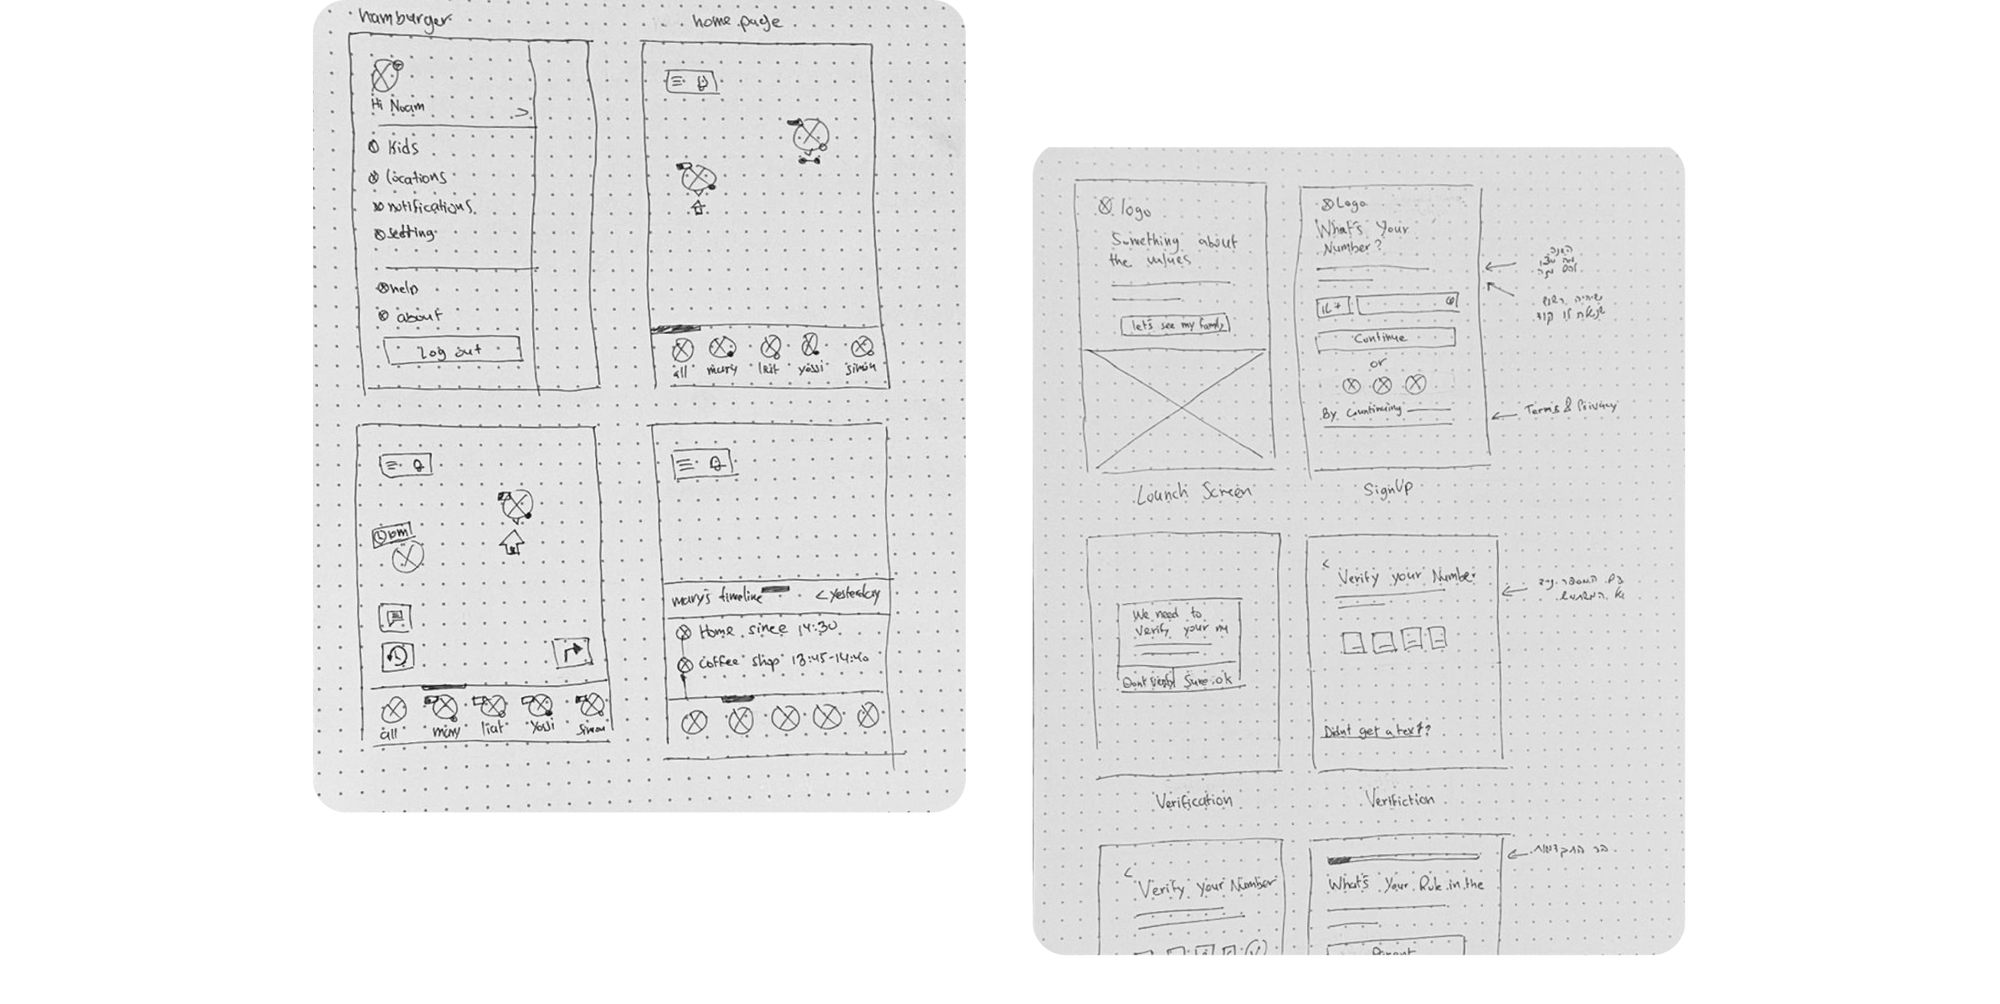 hamburger
Hi Noam
>
Kids
locations
notifications
setting
help
about
Log out
home page
all mary liat yossi simon
all mary liat Yossi Simon
mary's timeline < yesterday
Home since 14:30
Coffee shop 13:45-14:40
logo
Something about
the values
let's see my family
Lounch Screen
Logo
What's Your
Number?
Continue
or
By Countinuing
Terms & Privacy
SignUp
We need to
Verify your
Sure ok
Verification
<
Verify your Number
Didnt get a text?
Verifiction
<
Verify your Number
What's Your Role in the
Parent